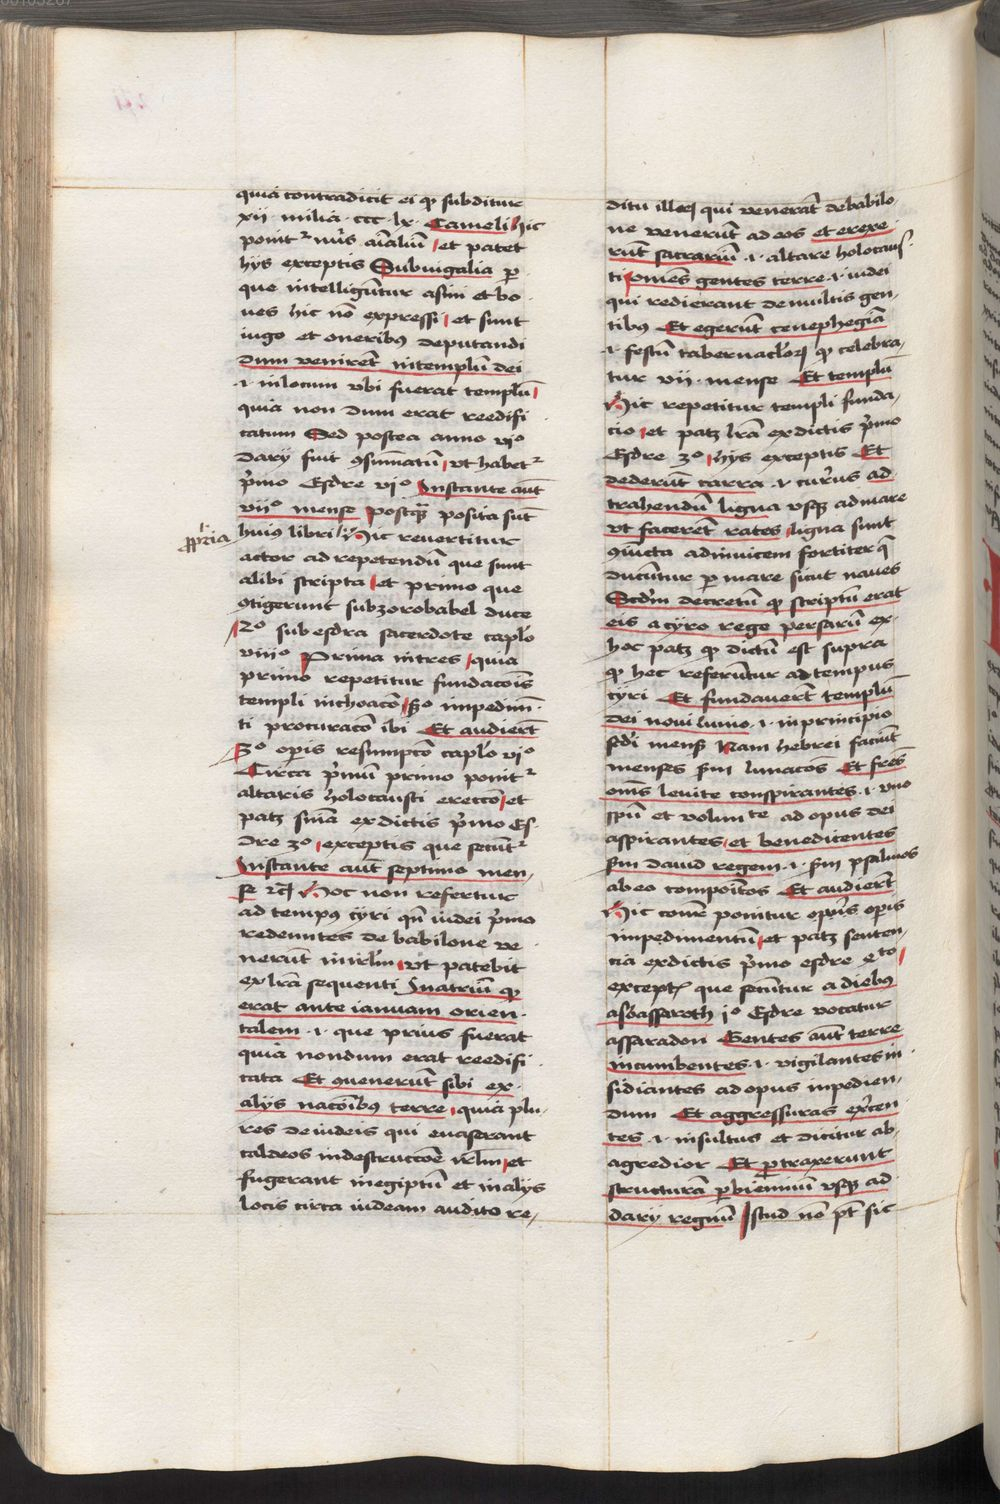 quia contradicit ei ꝙ subditur
xii · milia · ccc · lx · Cameli hic
ponitᷣ nūs aīaliū et patet
hys exceptis Subiugalia ꝑ
que intelligūtur asini et bo
ues hic nō expressi et sunt
iugo et oneribꝰ deputandi
dum venirēt in templū dei
·i· in locum vbi fuerat templū
quia non dum erat reedifi
catum Sed postea anno viº
dary fuit ꝯsūmatū vt habetᷣ
pͥmo Esdre viº Instante aūt
viiº mense postqᷓ posita sūt
huiꝰ libri Hic reuertitur
actor ad repetendū que sunt
alibi scripta et primo que
ꝯtigerunt sub zorobabel duce
2º sub esdra sacerdote caplo
viiiº Prima in tres quia
primo repetitur fundacōis
templi inchoacō scdº impedim
ti procuracō ibi Et audierēt
3º operis resumpcō caplo viº
Circa pͥmū primo ponitᷣ
altaris holocausti ereccō et
patꝫ sn̄ia ex dictis pͥmo Es
dre 3º exceptis que secūtᷣ
Instante aūt septimo men
se ⁊cꝫ Hoc non refertur
ad tempꝰ cyri qn̄ iudei pͥmo
redeuntes de babilone ve
nerūt in irlm̄ vt patebit
ex lr̄a sequenti In atriū ꝙ
erat ante ianuam orien
talem ·i· que prius fuerat
quia nondum erat reedifi
cata Et ꝯuenerūt sibi ex
alijs nacōibꝰ terre quia plu
res de iudeis qui euaserant
caldeos in destruccōe irlm̄ et
fugerant in egiptū et in alijs
locis circa iudeam audito re
ditu illoꝝ qui venerāt de babilo
ne venerūt ad eos et erexe
rūt sacrariū ·i· altare holocaus
ti omēs gentes terre ·i· iudei
qui redierant de multis gen
tibꝰ Et egerūt cenophegiā
·i· festū tabernacloꝝ ꝙ celebra
tur vii · mense Et templū
Hic repetitur templi funda
cio et patꝫ lr̄a ex dictis pͥmo
Esdre 3º hys exceptis Et
dederūt carra ·i· currꝰ ad
trahendū ligna vsqꝫ ad mare
vt facerēt rates ligna sunt
ꝯiūcta adinuicem fortiter q̄
ducūtur ꝑ mare sicut naues
Scdm̄ decretū ꝙ scriptū erat
eis a cyro rege persarū ex
hoc patꝫ ꝙ dictū est supra
ꝙ hec referūtur ad tempus
cyri Et fundauerēt templū
dei noui lunio ·i· in principio
scdi mensꝭ Nam hebrei faciūt
menses sm̄ lunacōs Et frēs
omēs leuite conspirantes ·i· vno
spū et volunte ad opus dei
aspirantes et benedicentes
sm̄ dauid regem ·i· sm̄ psalmos
ab eo compoītos Et audierēt
Hic cōntr ponitur opis
impedimentū et patꝫ senten
cia ex dictis pͥmo esdre 4to
exceptꝭ que secūtur a diebꝰ
asbassaroth iº Esdre vocatur
assaradon Gentes aūt terre
incumbentes ·i· vigilantes in
sidiantes ad opus inpedien
dum Et aggressuras exͤcen
tes ·i· insultus et dicitur ab
agredior Et ꝑtraxerunt
structurā ꝑ bienniū vsqꝫ ad
dary regnū Istud nō pōt sic